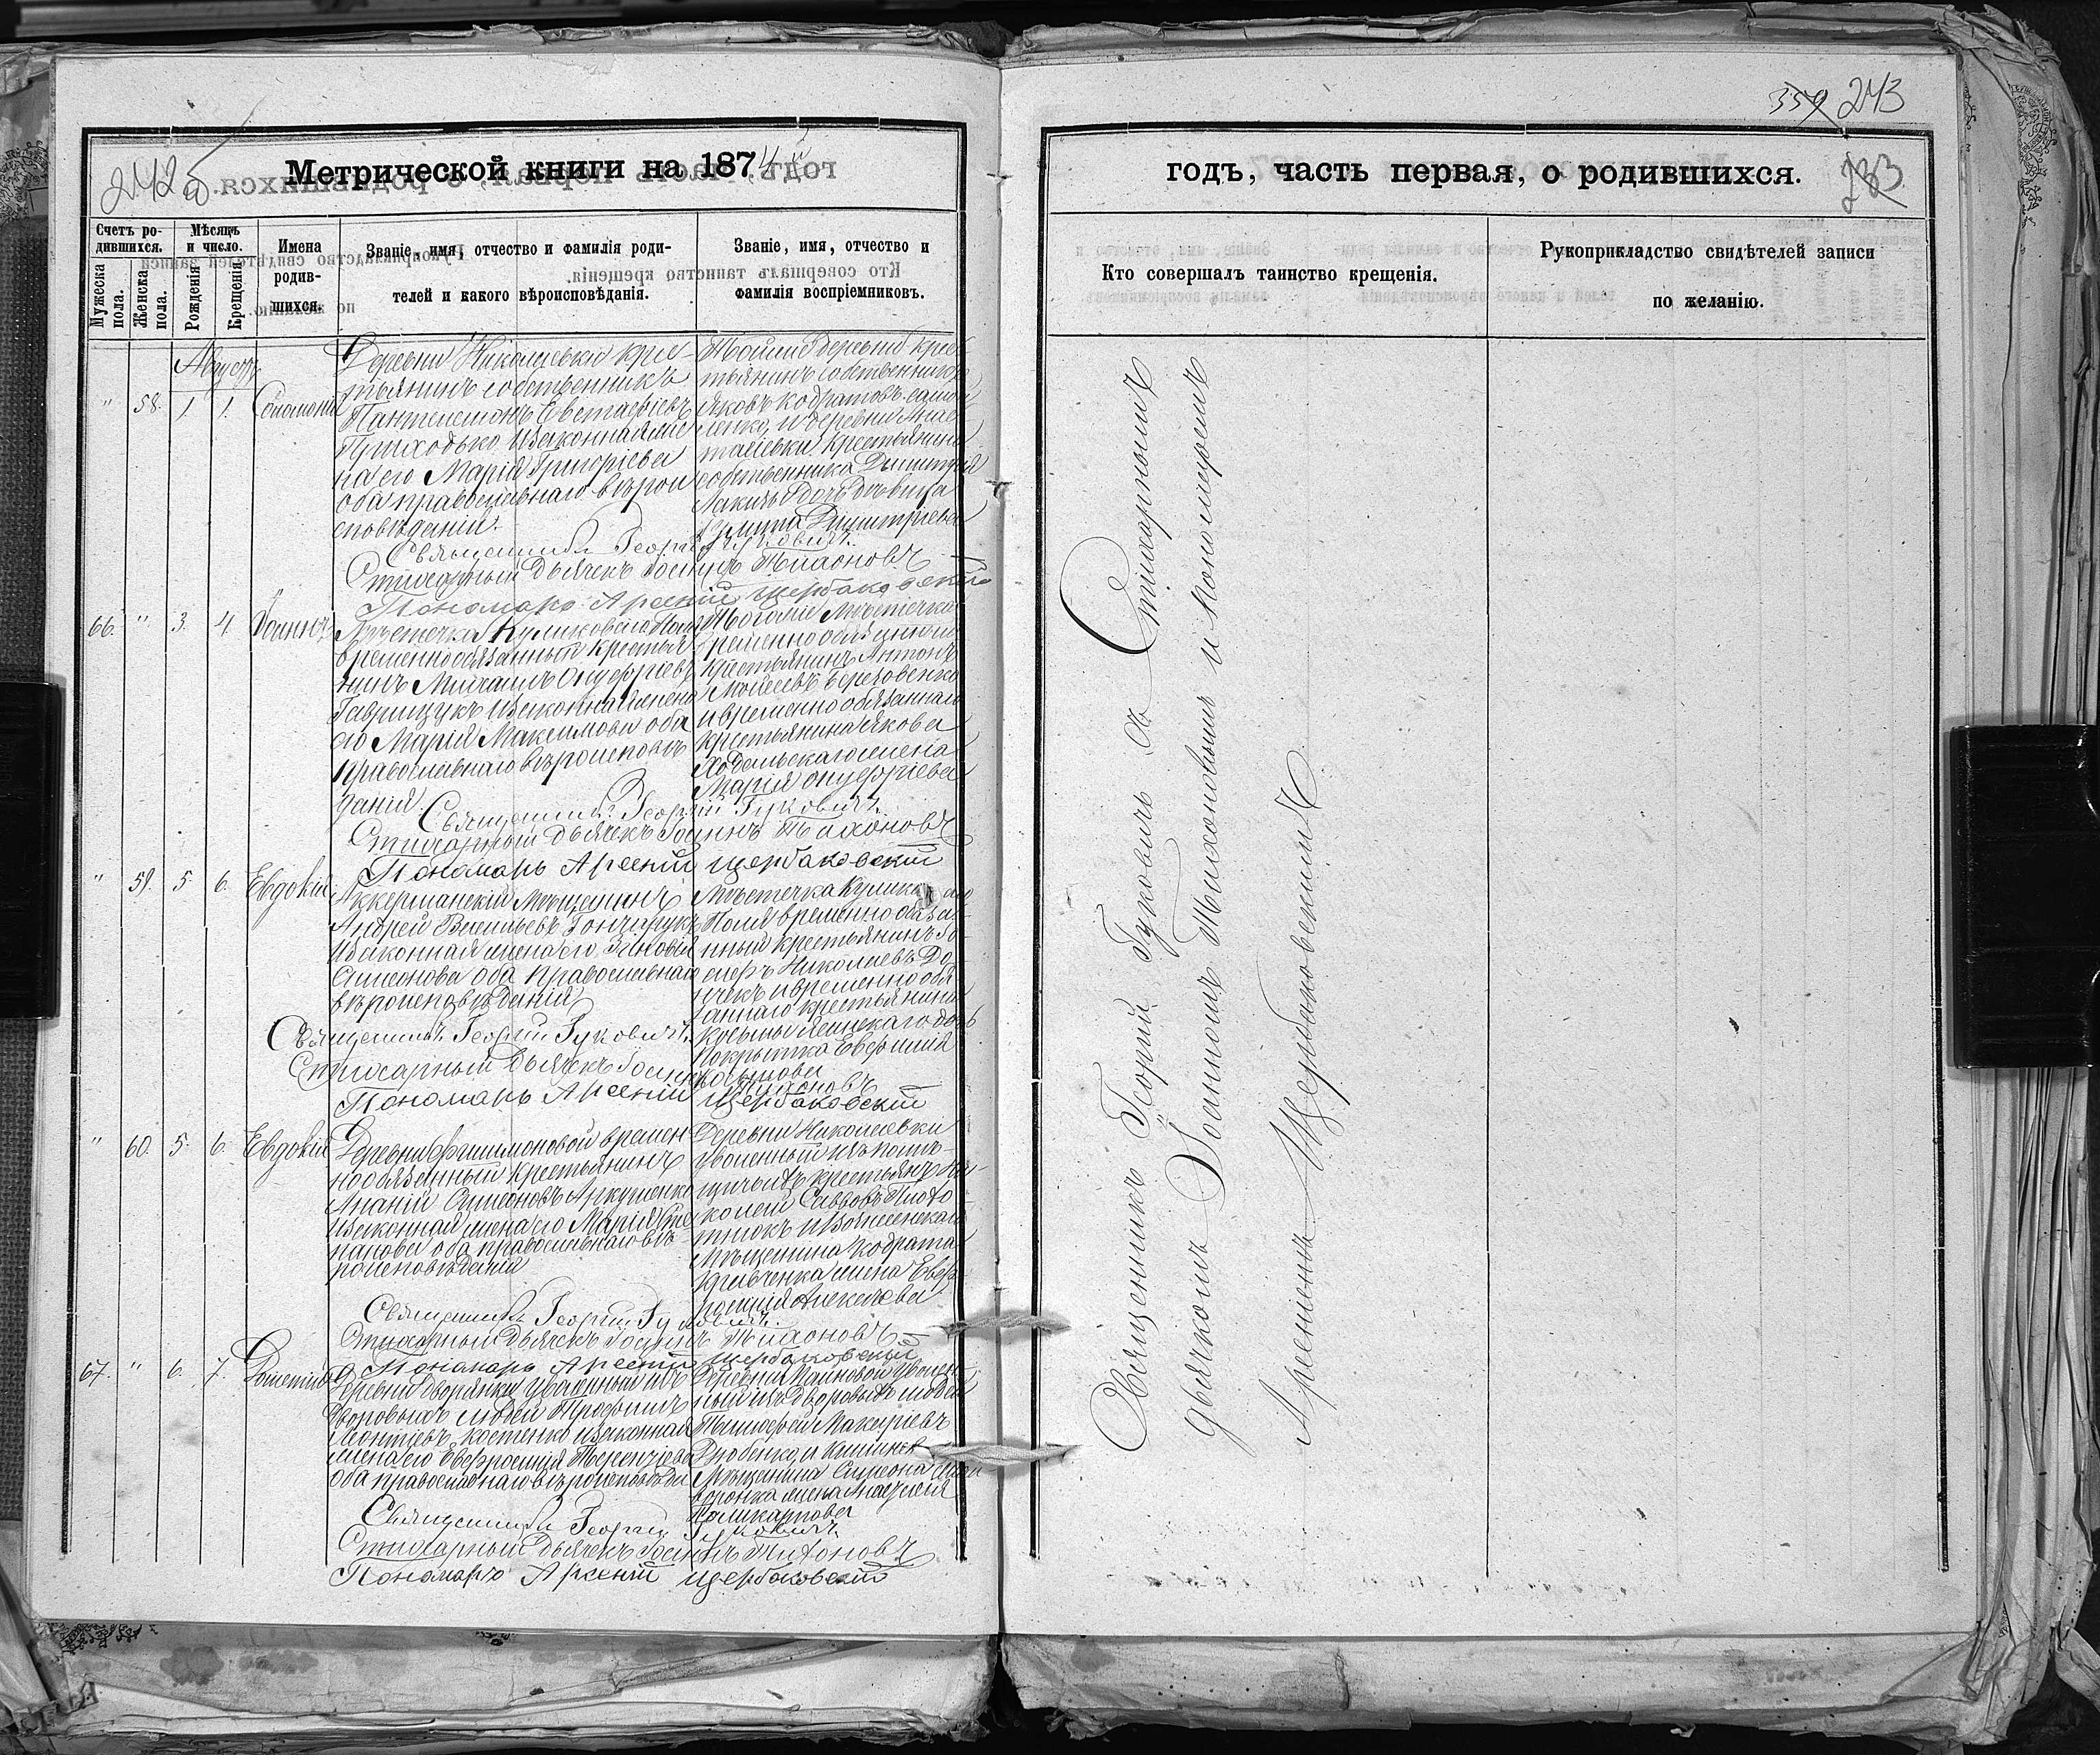 242 об
Метрической книги на 1874
Счетъ ро-
дившихся.
Мужеска
пола.
Женска
пола.
Мѣсяцъ
и число.
Рожденія
Крещенія
Имена
родив-
шихся.
Званіе, имя, отчество и фамилія роди-
телей и какого вѣроисповѣданія.
Званіе, имя, отчество и
фамилія воспріемниковъ.
Августъ
" 58. 1 1. Соломонія
Деревни Николаевки крес-
тьянинъ собственникъ
Пантелеймонъ Евстафіевъ
Приходько и законная же-
на его Марія Григоріева
оба православнаго вѣрои
сповѣданія.
Тойже деревни крес
тьянинъ собственникъ
Яковъ Кодратовъ
ленко, и деревни Анас
тасіевки крестьянина
собственника Димитрія
дочь дѣвица
Димитріева
Священникъ Георгій Гуковичъ.
Стихарный Дьячекъ Іоаннъ Тихоновъ
Пономарь Арсеній Щербаковскій
66. " 3. 4. Іоаннъ
Мѣстечка Куликовскаго Поля
временнообязанный крестья
нинъ Михаилъ Онуфріевъ
Гаврищукъ и законная жена
его Марія Максимова оба
православнаго вѣроисповѣ
данія
Тогоже Мѣстечка
временнообязанный
крестьянинъ Антонъ
Моисеевъ Березовенко
и временнообязаннаго
крестьянина Якова
Ходольскаго жена
Марія Онуфріева
Священникъ Георгій Гуковичъ.
Стихарный Дьячекъ Іоаннъ Тихоновъ
Пономарь Арсеній Щербаковскій
" 59. 5. 6. Евдокія
Аккерманскій Мѣщанинъ
Андрей Васильевъ Гончарукъ
и законная жена его Зиновія
Симеонова оба православнаго
вѣроисповѣданія
Мѣстечка Куликовскаго
Поля временно обяза-
нный крестьянинъ
Николаевъ
и временно обя
заннаго крестьянина
Косьмы дочь
Евфимія
Косьмова
Священникъ Георгій Гуковичъ.
Стихарный Дьячекъ Іоаннъ Тихоновъ
Пономарь Арсеній Щербаковскій
" 60. 5. 6. Евдокія
Деревни Филимоновой времен
нообязанный крестьянинъ
Ананій Симеоновъ Аркушенко
и законная жена его Марія Сте
панова оба православнаго вѣ
роисповѣданія
Деревни Николаевки
уволенный изъ помѣ-
щичьихъ крестьянъ Ни-
колай Савовъ
и Вознесенскаго
Мѣщанина Кодрата
жена Евф
росинія Алексѣева
Священникъ Георгій Гуковичъ.
Стихарный Дьячекъ Іоаннъ Тихоновъ
Пономарь Арсеній Щербаковскій
67. " 6. 7. Дометій
Деревни Дворянки уволенный изъ
дворовыхъ людей Трофимъ
Леонтіевъ Костенко и законная
жена его Евфросинія Терентіева
оба православнаго вѣроисповѣдан
Деревни уволен
ный изъ дворовыхъ людей
Тимофей Макаріевъ
и Кишинев
Мѣщанина Симеона
жена Анастасія
Поликарпова
Священникъ Георгій Гуковичъ
Стихарный Дьячекъ Іоаннъ Тихоновъ
Пономарь Арсеній Щербаковскій
359 243
233
годъ, часть первая, о родившихся.
Кто совершалъ таинство крещенія.
Рукоприкладство свидѣтелей записи
по желанію.
Священникъ Георгій Гуковичъ съ Стихарнымъ
дьячкомъ Іоанномъ Тихоновымъ и пономаремъ
Арсеніемъ Щербаковскимъ